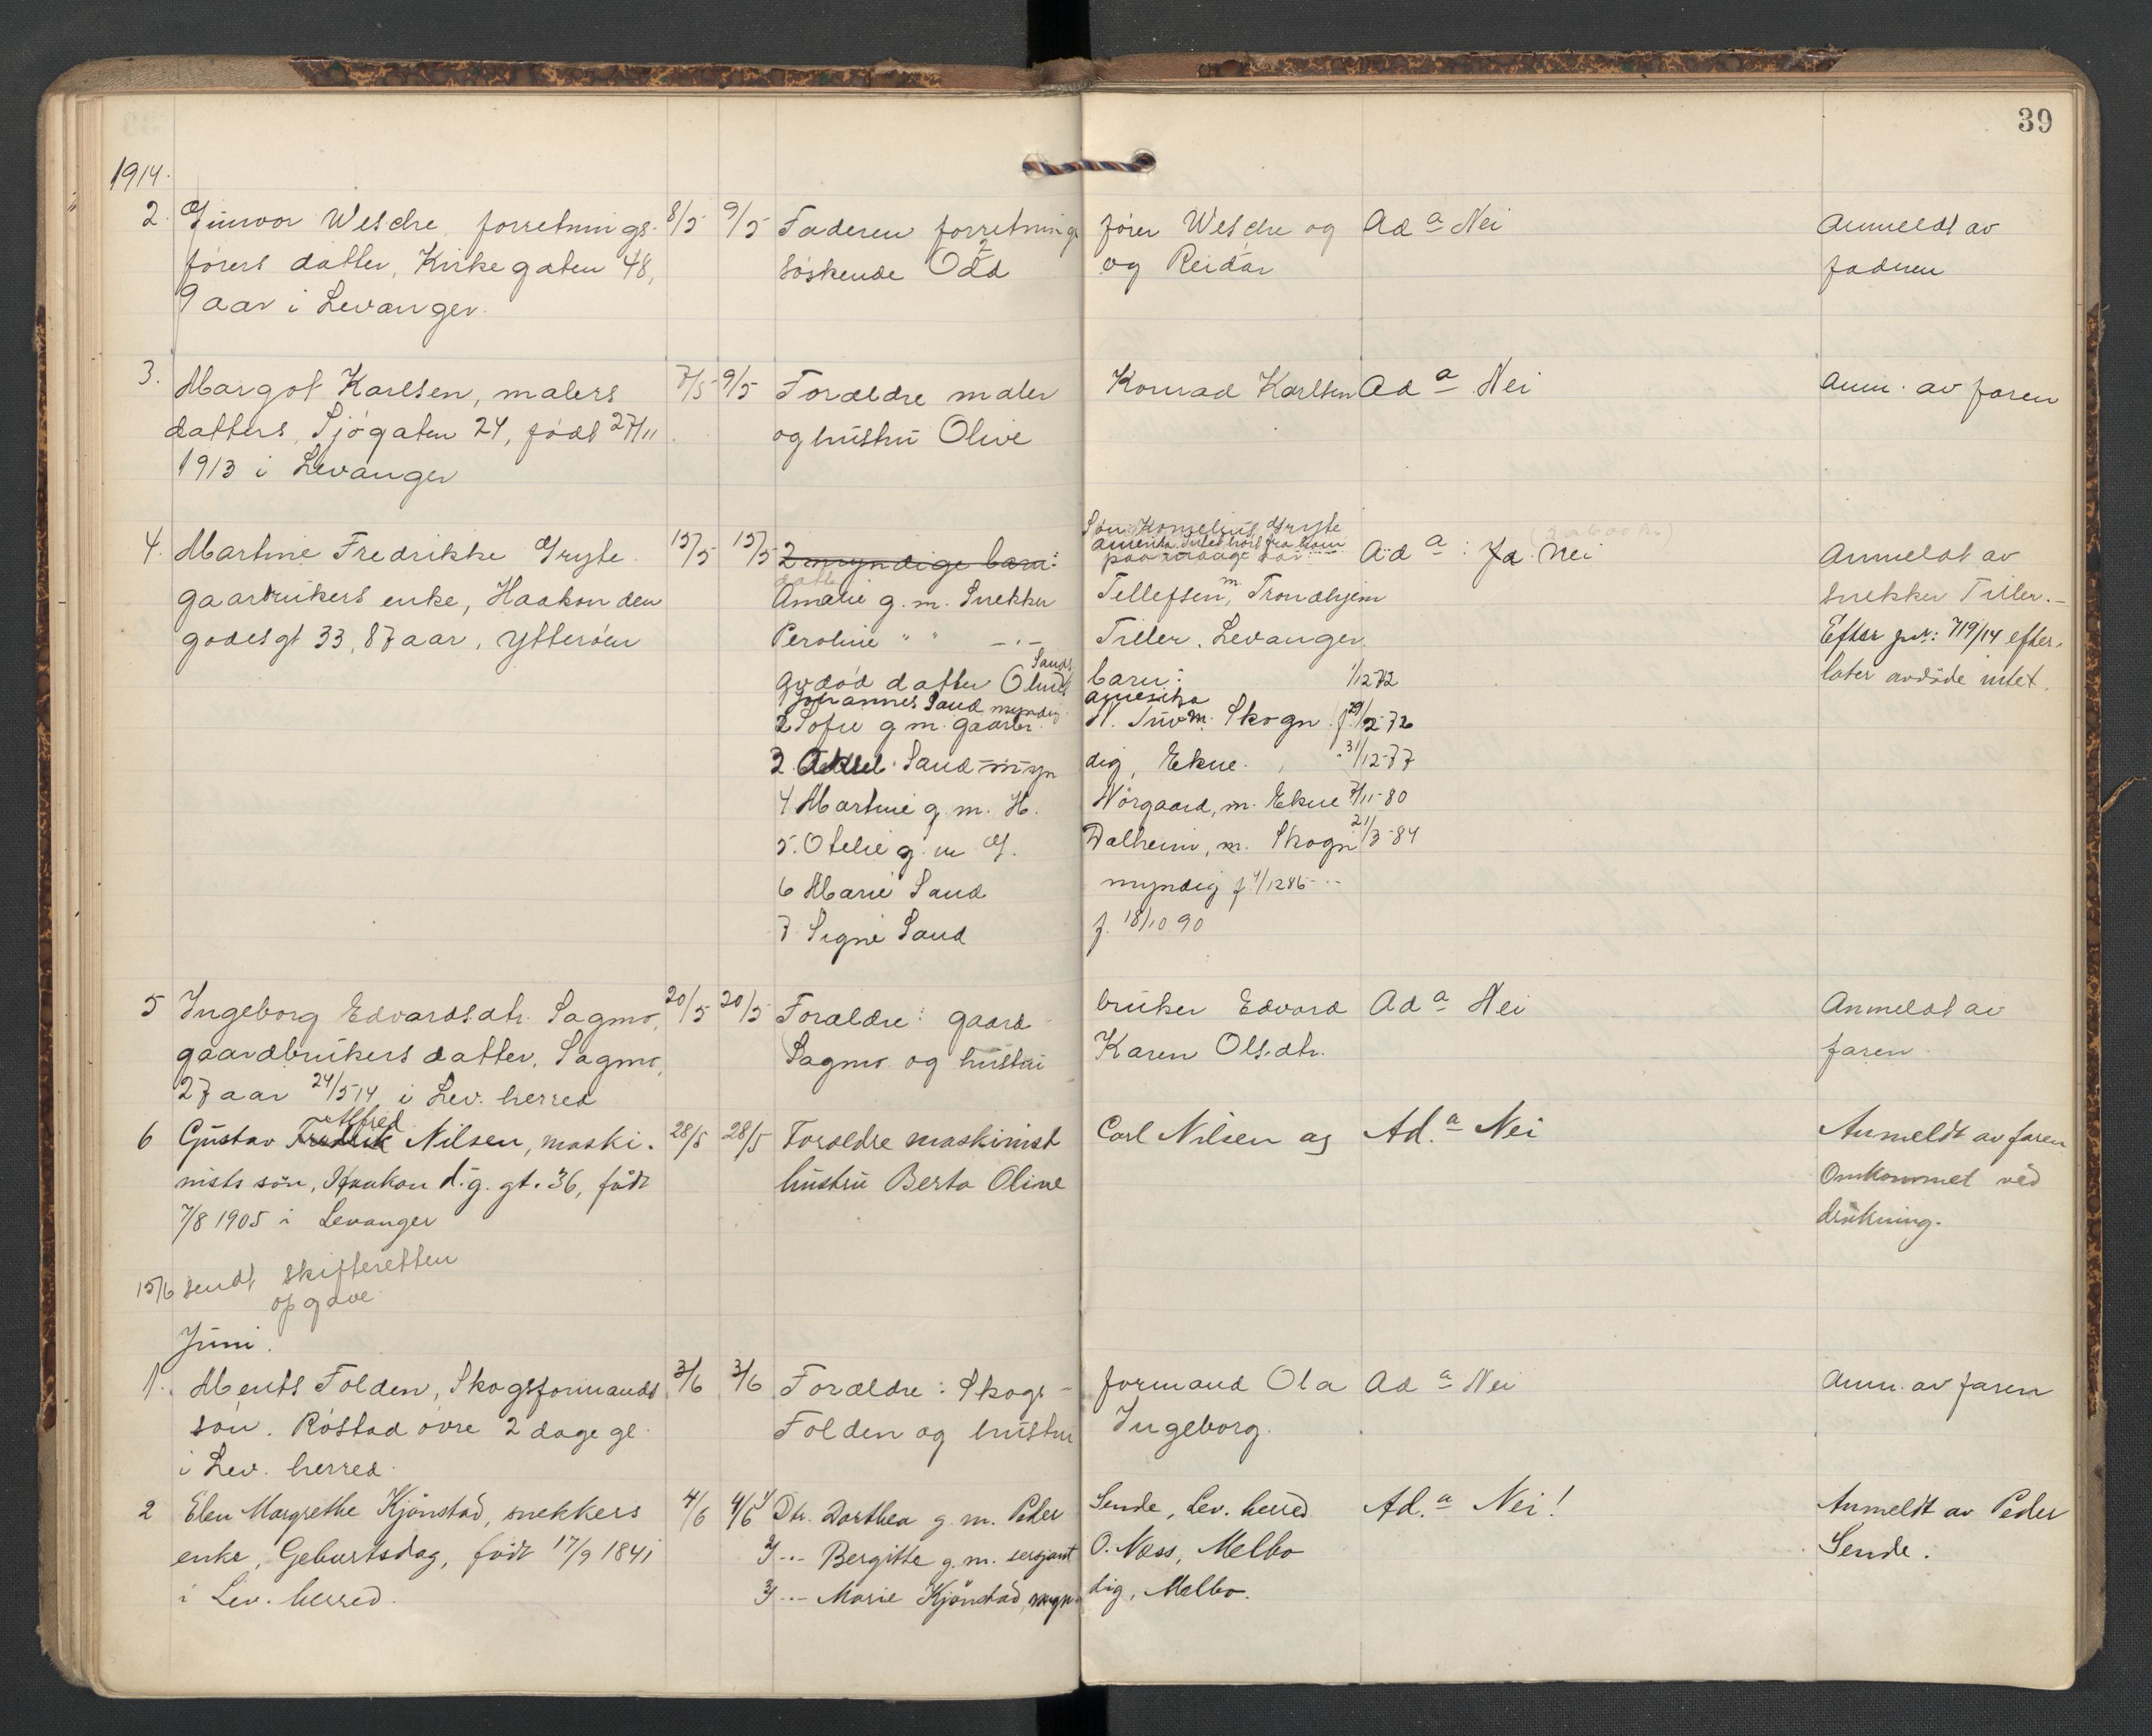 39
1914.
2. Gunvor Welche forretnings- 8/5 9/5 Faderen forretnings fører Welche og Ad a Nei Anmeldt av
førers datter, Kirkegaten 48, søskende 2 Odd og Reidar faderen
9 aar i Levanger.
3. Margot Karlsen, malers 7/5 9/5 Forældre maler Konrad Karlsen Ad a Nei Anm. av faren
datters, Sjøgaten 24, født 27/11 og hustru Olive
1913 i Levanger
Søn Kornelius Gryte
amerika. Intet hørt fra ham
paa mange aar
4. Martine Fredrikke Gryte 15/5 15/5 2 myndige barn: Ad a : Ja Nei Anmeldt av
gaarbrukers enke, Haakon den Amalie g. m. Snekker Tellefsen, m. Trondhjem snekker Tiller.-
godesgt 33, 87 aar, Ytterøen Peroline " " -.- Tiller, Levanger. Efter jnr: 719/14 efter-
avdød datter Oluf Sands barn: 1/12 72 later avdøde intet.
1 Johannes Sand myndig amerika
2 Sofie g m. gaarbr. N. Tuv m. Skogn f. 29/12-72
3 Sand myn dig, Ekne. " 31/12-77
4 Martine g. m. H. Nørgaard, m. Ekne 7/11-80
5. Otelie g. m G. Dalheim, m. Skogn 21/3-84
6 Marie Sand myndig f. 4/12 86
7 Signe Sand f. 18/10 90
5 Ingeborg Edvardsdtr. Sagmo, 20/5 20/5 Forældre: gaard bruker Edvard Ad a Nei Anmeldt av
gaardbrukers datter, Sagmo, Sagmo og hustru Karen Olsdtr. faren
27 aar 24/5 14 i Lev. herred
6 Gustav Fredrik Alfred Nilsen, maski- 28/5 28/5 Forældre maskinist Carl Nilsen og Ad. a Nei Anmeldt av faren
nists søn, Haakon d. g. gt. 36, født hustru Berta Oline Omkommet ved
7/8 1905 i Levanger drukning.
15/6 sendt skifteretten
opgave
Juni.
1. Ments Folden, Skogsformands 3/6 3/6 Forældre: Skogs- formand Ola Ad a Nei Anm. av faren
søn. Røstad øvre 2 dage gl. Folden og hustru Ingeborg.
i Lev. herred.
2 Elen Margrethe Kjønstad, snekkers 4/6 4/6 1/ Dtr. Dorthea g. m. Peder Sende, Lev. herred Ad. a Nei! Anmeldt av Peder
enke, Geburtsdag, født 17/9 1841 2/ --- Bergitte g. m. sersjant O. Næss, Melbo Sende.
i Lev. herred. 3/ --- Marie Kjønstad, myn- dig, Melbo.